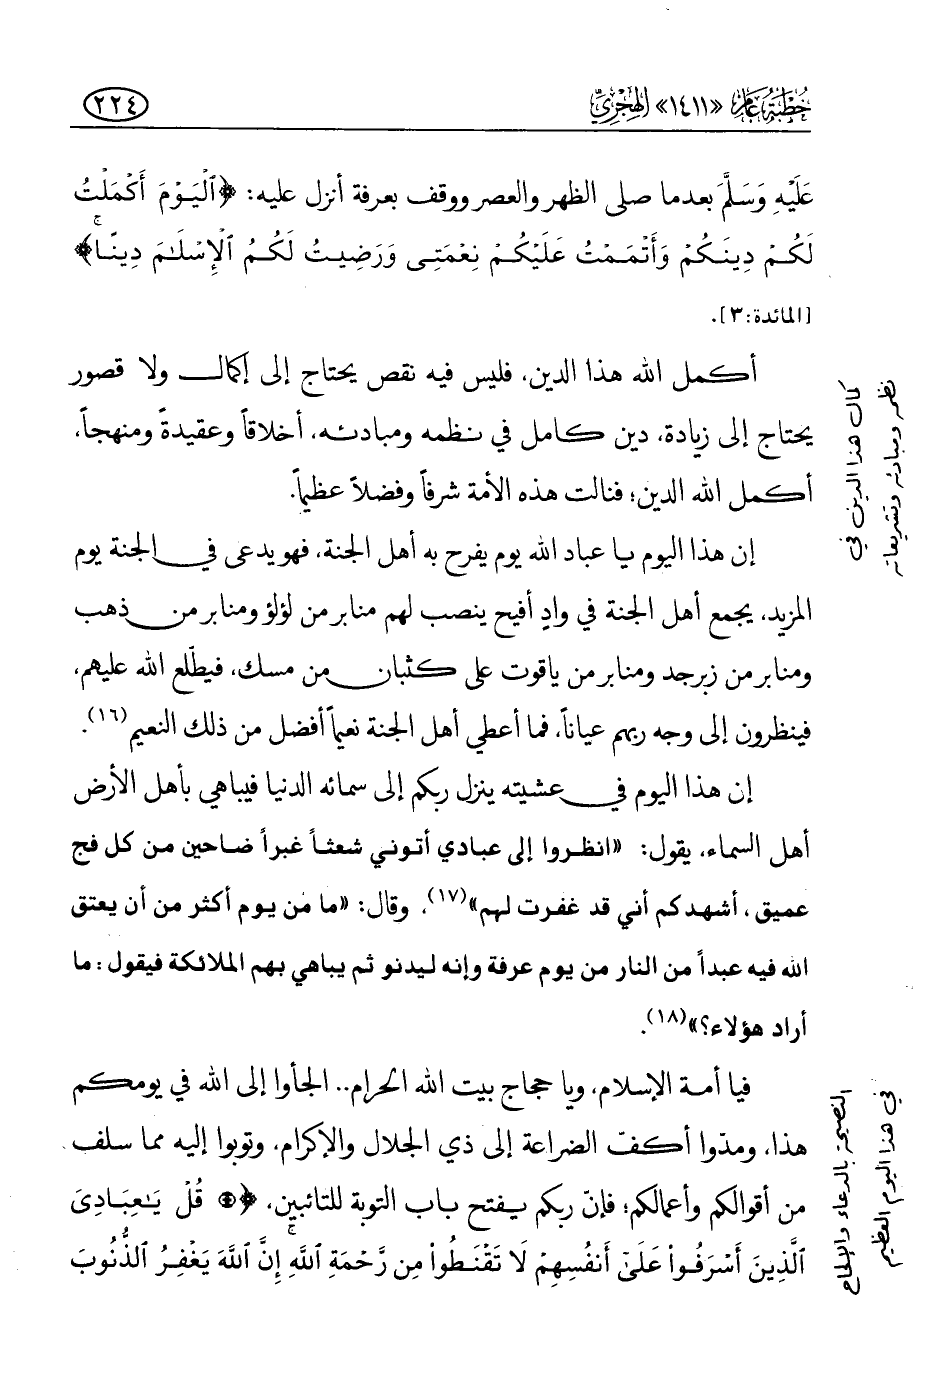 خطبة عام «١٤١١» الهجري
٢٢٤
عَلَيْهِ وَسَلَّمَ بعدما صلى الظهر والعصر ووقف بعرفة أنزل عليه: ﴿ٱلْيَوْمَ أَكْمَلْتُ
لَكُمْ دِينَكُمْ وَأَتْمَمْتُ عَلَيْكُمْ نِعْمَتِى وَرَضِيتُ لَكُمُ ٱلْإِسْلَٰمَ دِينًاۚ﴾
[المائدة:٣].
أكمل الله هذا الدين، فليس فيه نقص يحتاج إلى إكمال ولا قصور
يحتاج إلى زيادة، دين كامل في نظمه ومبادئه، أخلاقاً وعقيدةً ومنهجاً،
أكمل الله الدين؛ فنالت هذه الأمة شرفاً وفضلاً عظيماً.
كمال هذا الدين في
نظمه ومبادئه وتشريعاته
إن هذا اليوم يا عباد الله يوم يفرح به أهل الجنة، فهو يدعى في الجنة يوم
المزيد، يجمع أهل الجنة في وادٍ أفيح ينصب لهم منابر من لؤلؤ ومنابر من ذهب
ومنابر من زبرجد ومنابر من ياقوت على كثبان من مسك، فيطّلع الله عليهم،
فينظرون إلى وجه ربهم عياناً، فما أعطي أهل الجنة نعيماً أفضل من ذلك النعيم(١٦).
إن هذا اليوم في عشيته ينزل ربكم إلى سمائه الدنيا فيباهي بأهل الأرض
أهل السماء، يقول: «انظروا إلى عبادي أتوني شعثاً غبراً ضاحين من كل فج
عميق، أشهدكم أني قد غفرت لهم»(١٧)، وقال: «ما من يوم أكثر من أن يعتق
الله فيه عبداً من النار من يوم عرفة وإنه ليدنو ثم يباهي بهم الملائكة فيقول: ما
أراد هؤلاء؟»(١٨).
فيا أمة الإسلام، ويا حجاج بيت الله الحرام.. الجأوا إلى الله في يومكم
هذا، ومدّوا أكفّ الضراعة إلى ذي الجلال والإكرام، وتوبوا إليه مما سلف
من أقوالكم وأعمالكم؛ فإنّ ربكم يفتح باب التوبة للتائبين، ﴿۞ قُلْ يَٰعِبَادِىَ
ٱلَّذِينَ أَسْرَفُوا۟ عَلَىٰٓ أَنفُسِهِمْ لَا تَقْنَطُوا۟ مِن رَّحْمَةِ ٱللَّهِۚ إِنَّ ٱللَّهَ يَغْفِرُ ٱلذُّنُوبَ
النصيحة بالدعاء والإلحاح
في هذا اليوم العظيم